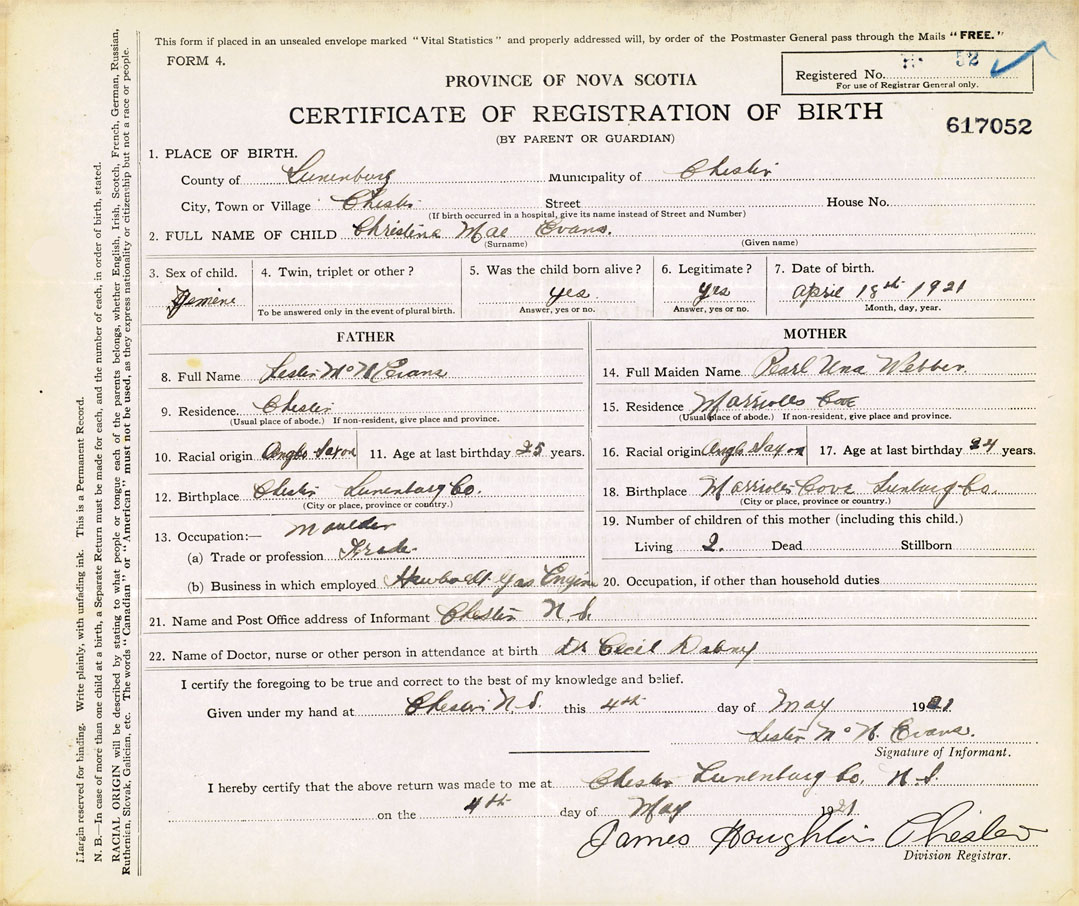 This form if placed in an unsealed envelope marked "Vital Statistics" and properly addressed will, by order of the Postmaster General pass through the Mails "FREE."
FORM 4.
52
Registered No.
For use of Registrar General only.
PROVINCE OF NOVA SCOTIA
CERTIFICATE OF REGISTRATION OF BIRTH
617052
(BY PARENT OR GUARDIAN)
1. PLACE OF BIRTH.
County of Lunenburg Municipality of Chester
City, Town or Village Chester Street House No.
(If birth occurred in a hospital, give its name instead of Street and Number)
2. FULL NAME OF CHILD Christina Mae Evans.
(Surname) (Given name)
3. Sex of child. 4. Twin, triplet or other? 5. Was the child born alive? 6. Legitimate? 7. Date of birth.
Femine yes yes April 18th 1921
To be answered only in the event of plural birth. Answer, yes or no. Answer, yes or no. Month, day, year.
FATHER
8. Full Name Lester McN Evans
9. Residence. Chester
(Usual place of abode.) If non-resident, give place and province.
10. Racial origin Anglo Saxon 11. Age at last birthday 25 years.
12. Birthplace Chester Lunenburg Co.
(City or place, province or country.)
13. Occupation:— Moulder
(a) Trade or profession Trade
(b) Business in which employed Hawboldt Gas Engine
MOTHER
14. Full Maiden Name Pearl Una Webber.
15. Residence Marriotts Cove
(Usual place of abode.) If non-resident, give place and province.
16. Racial origin Anglo Saxon 17. Age at last birthday 24 years.
18. Birthplace Marriotts Cove Lunburg Co.
(City or place, province or country.)
19. Number of children of this mother (including this child.)
Living 2. Dead Stillborn
20. Occupation, if other than household duties
21. Name and Post Office address of Informant Chester N.S.
22. Name of Doctor, nurse or other person in attendance at birth Dr Cecil
I certify the foregoing to be true and correct to the best of my knowledge and belief.
Given under my hand at Chester N.S. this 4th day of May 1921
Lester McN. Evans.
Signature of Informant.
I hereby certify that the above return was made to me at Chester Lunenburg Co. N.S.
on the 4th day of May 1921
James Houghton Chester
Division Registrar.
Margin reserved for binding. Write plainly, with unfading ink. This is a Permanent Record.
N. B.—In case of more than one child at a birth, a Separate Return must be made for each, and the number of each, in order of birth, stated.
RACIAL ORIGIN will be described by stating to what people or tongue each of the parents belongs, whether English, Irish, Scotch, French, German, Russian,
Ruthenian, Slovak, Galician, etc. The words "Canadian" or "American" must not be used, as they express nationality or citizenship but not a race or people.